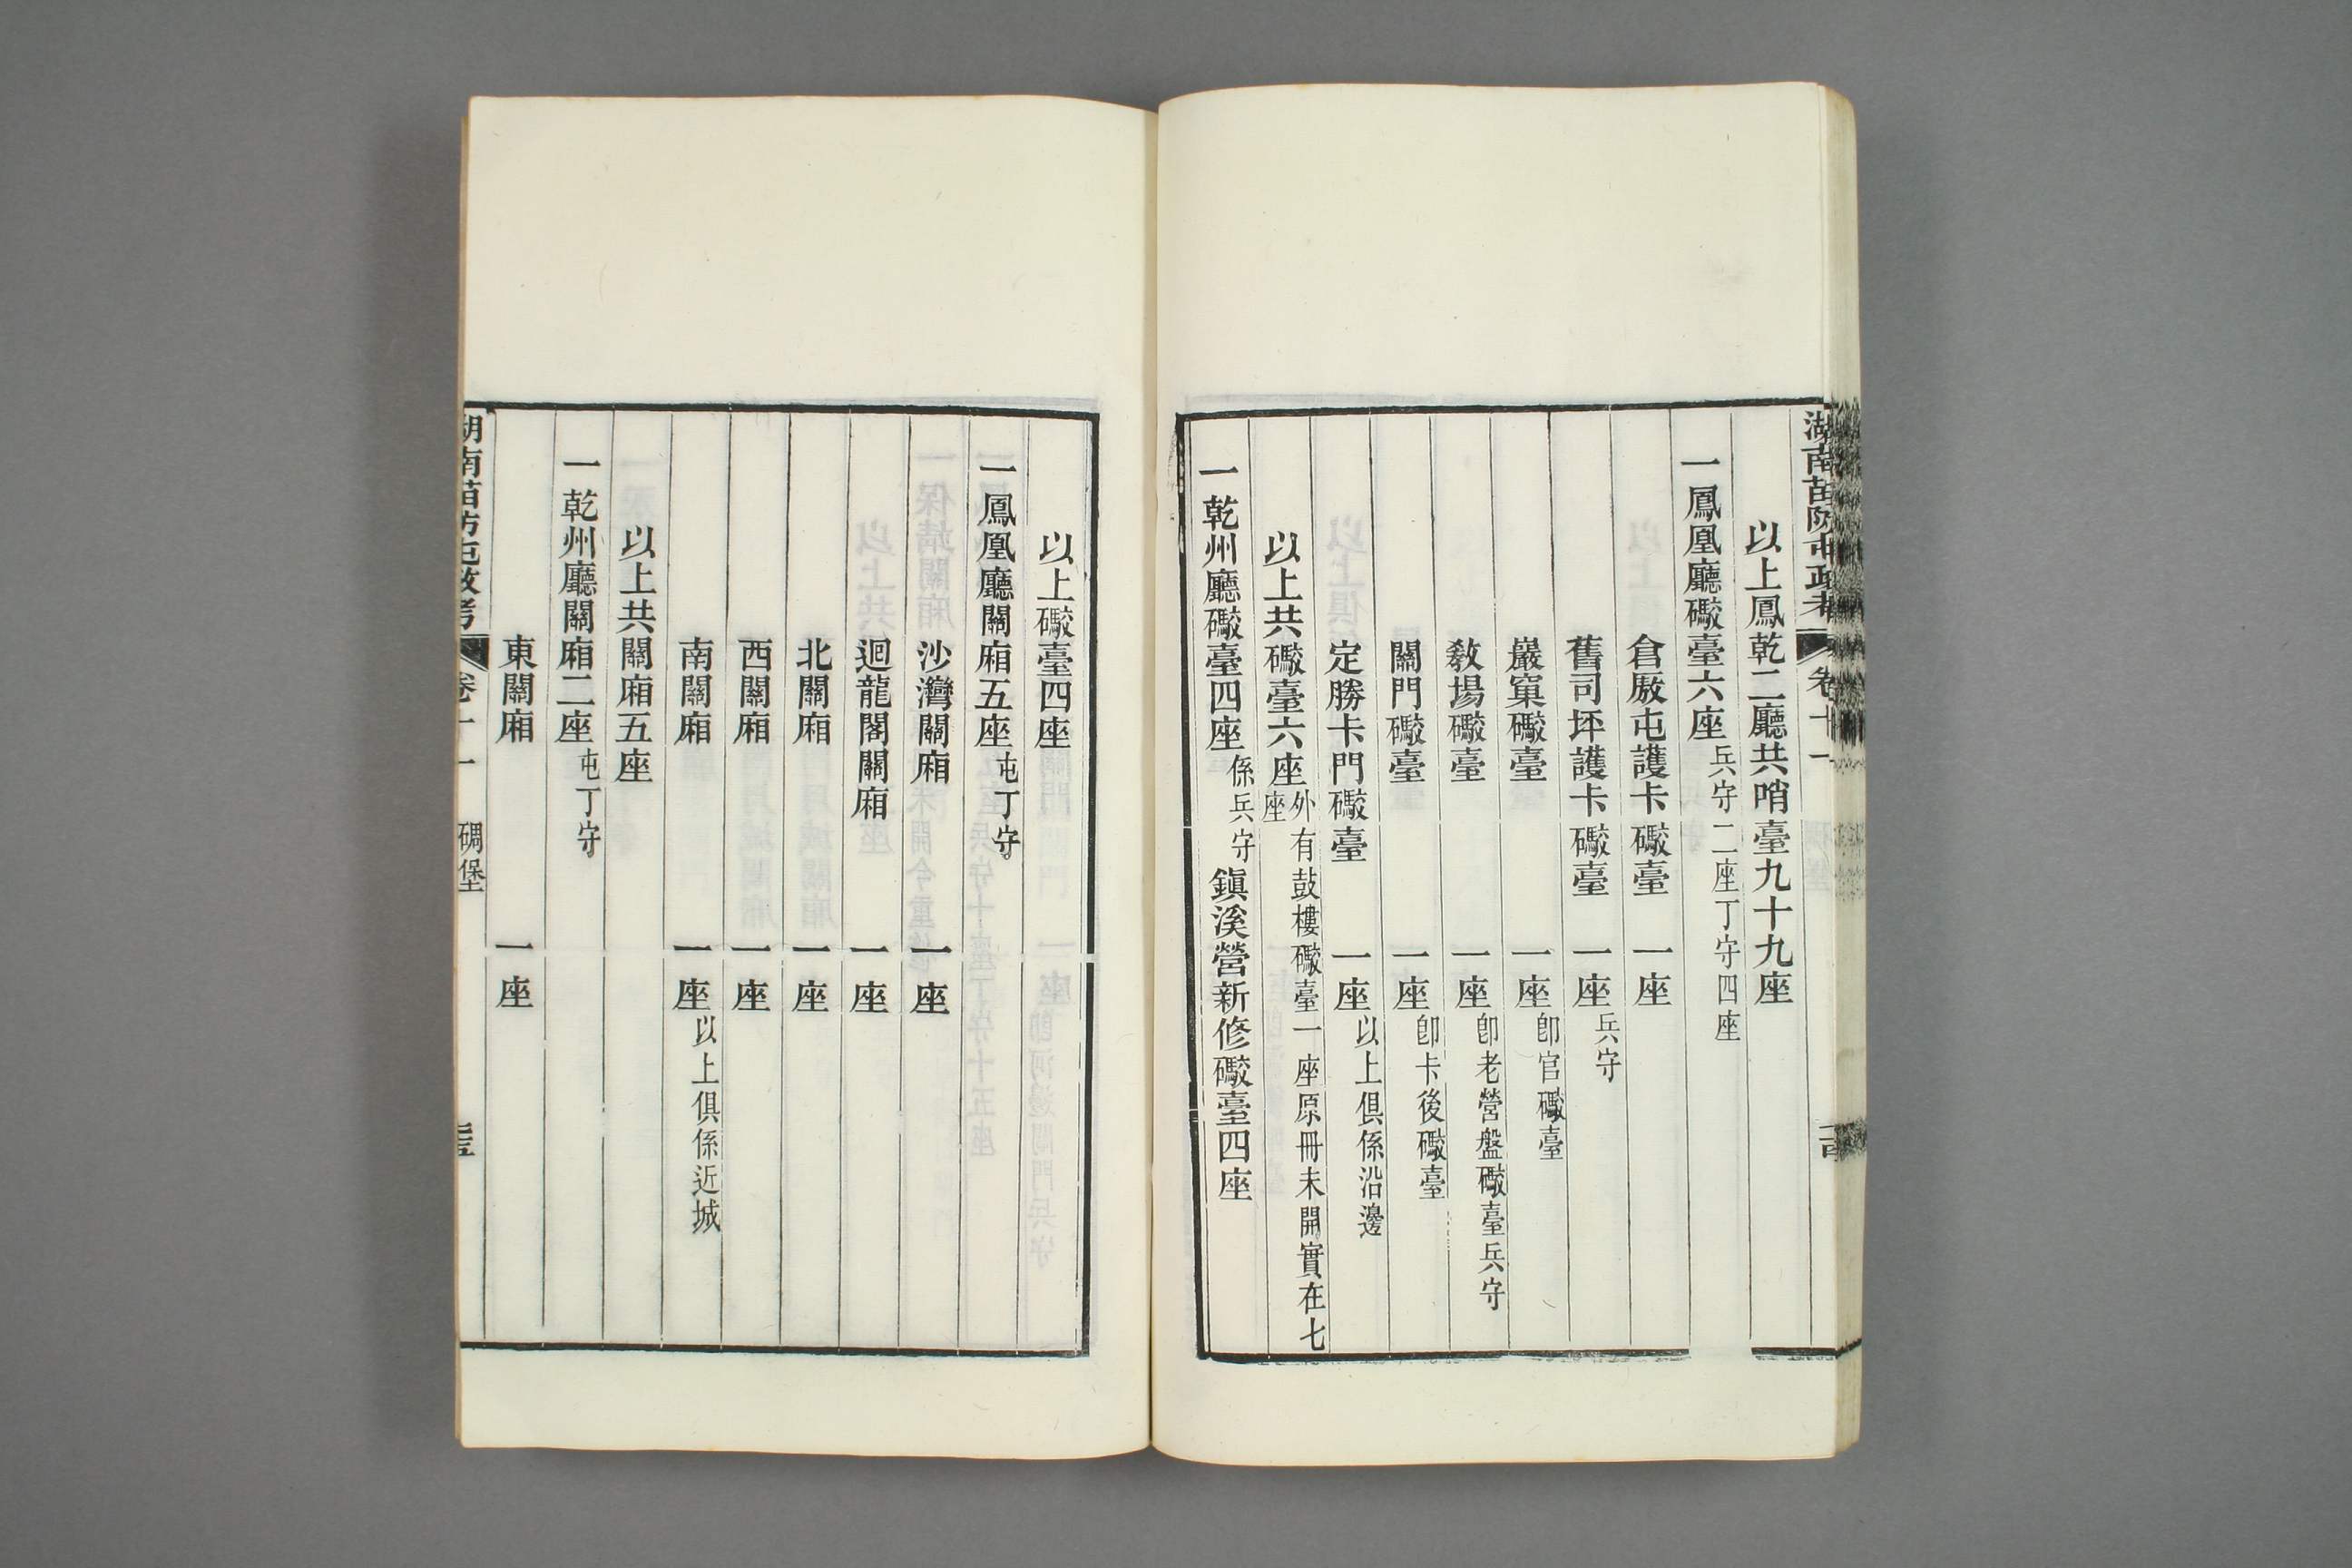 湖南苗防屯政考 卷十一
以上鳳乾二廳共哨臺九十九座
一鳳凰廳礮臺六座兵守二座丁守四座
倉厫屯護卡礮臺 一座
舊司坪護卡礮臺 一座兵守
巖窠礮臺 一座卽官礮臺
敎場礮臺 一座卽老營盤礮臺兵守
關門礮臺 一座卽卡後礮臺
定勝卡門礮臺 一座以上俱係沿邊
以上共礮臺六座外有鼓樓礮臺一座原冊未開實在七座
一乾州廳礮臺四座係兵守 鎭溪營新修礮臺四座
以上礮臺四座
一鳳凰廳關廂五座屯丁守
沙灣關廂 一座
迴龍閣關廂 一座
北關廂 一座
西關廂 一座
南關廂 一座以上俱係近城
以上共關廂五座
一乾州廳關廂二座屯丁守
東關廂 一座
湖南苗防屯政考 卷十一 碉堡